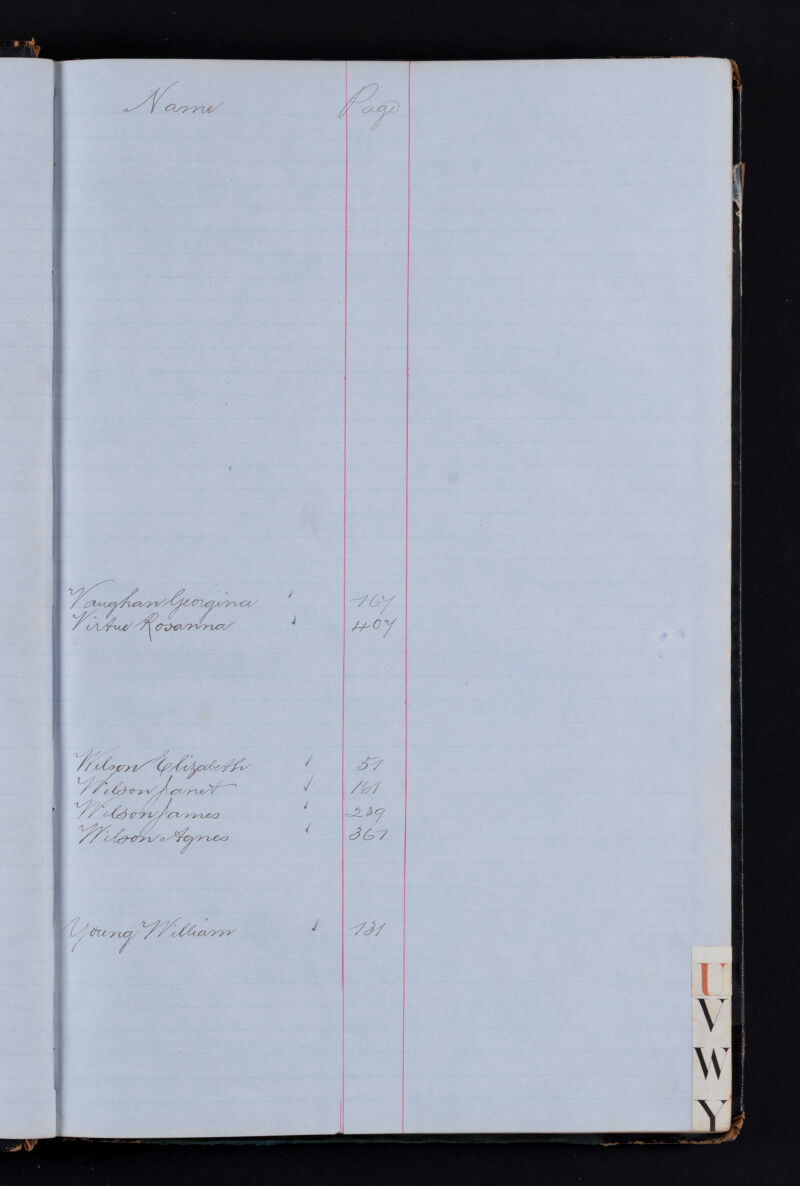 Name Page
Vaughan Georgina 167
Virtue Rosanna 407
Wilson Elizabeth 51
Wilson Janet 161
Wilson James 239
Wilson Agnes 367
Young William 131
U
V
W
Y